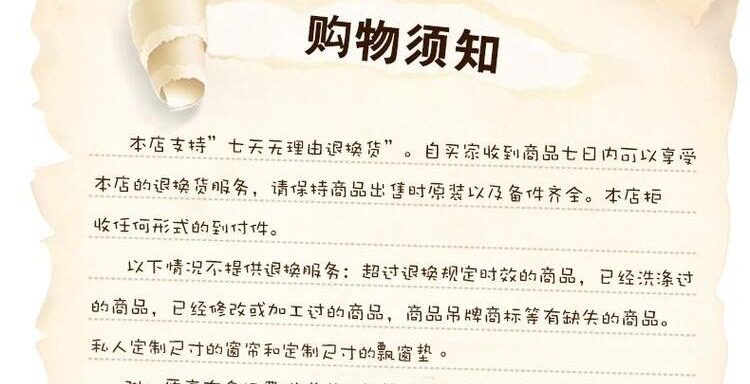 购物须知
本店支持”七天无理由退换货”。自买家收到商品七日内可以享受
本店的退换货服务，请保持商品出售时原装以及备件齐全。本店拒
收任何形式的到付件。
以下情况不提供退换服务：超过退换规定时效的商品，已经洗涤过
的商品，已经修改或加工过的商品，商品吊牌商标等有缺失的商品。
私人定制尺寸的窗帘和定制尺寸的飘窗垫。